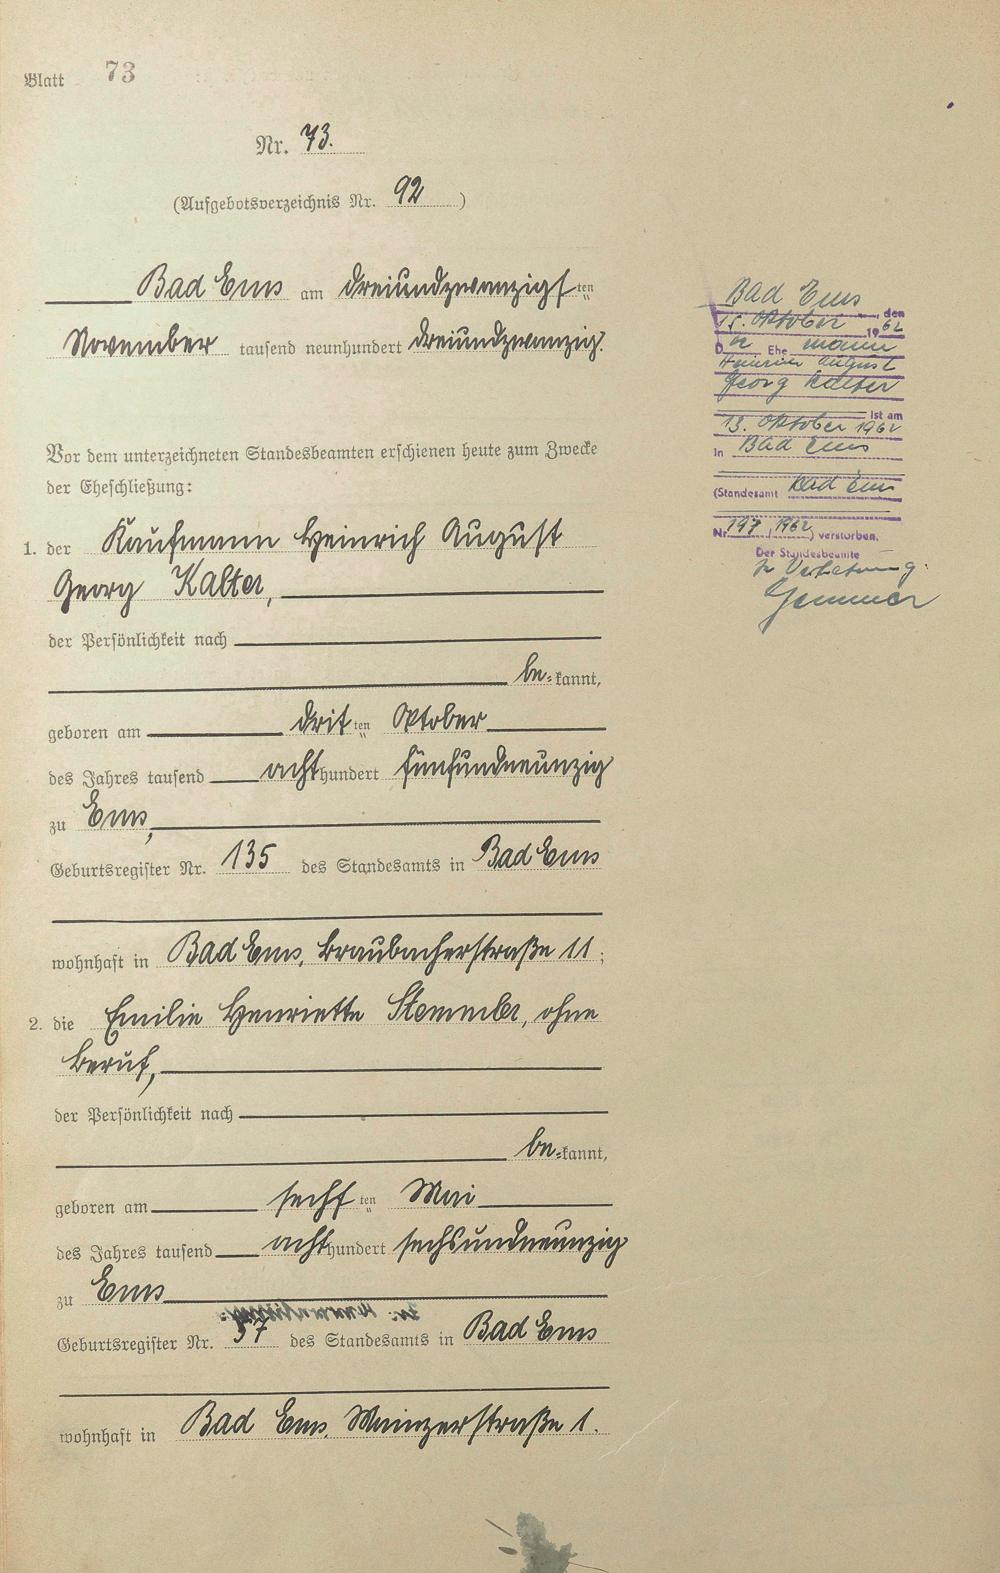 Blatt 73
Nr. 73.
(Aufgebotsverzeichnis Nr. 92)
Bad Ems am dreiundzwanzigsten
November tausend neunhundert dreiundzwanzig.
Vor dem unterzeichneten Standesbeamten erschienen heute zum Zwecke
der Eheschließung:
1. der Kaufmann Heinrich August
Georg Kalter,
der Persönlichkeit nach
be-kannt,
geboren am dritten Oktober
des Jahres tausend achthundert fünfundneunzig
zu Ems,
Geburtsregister Nr. 135 des Standesamts in Bad Ems
wohnhaft in Bad Ems, Braubacherstraße 11;
2. die Emilie Henriette Stemmler, ohne
Beruf,
der Persönlichkeit nach
be-kannt,
geboren am sechsten Mai
des Jahres tausend achthundert sechsundneunzig
zu Ems
Geburtsregister Nr. 57 des Standesamts in Bad Ems
wohnhaft in Bad Ems, Mainzerstraße 1.
Bad Ems, den
15. Oktober 1962
Der Ehemann
Heinrich August
Georg Kalter
ist am
13. Oktober 1962
in Bad Ems
(Standesamt Bad Ems
Nr. 197/1962) verstorben.
Der Standesbeamte
In Vertretung: